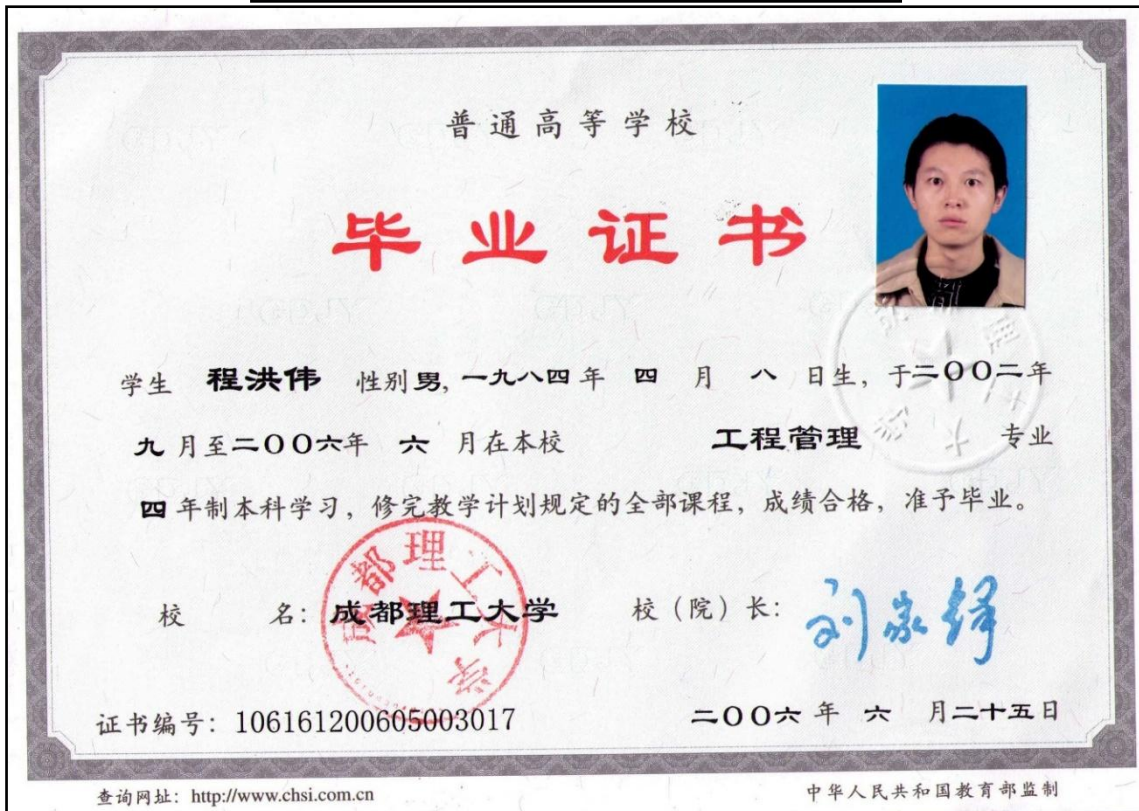 普通高等学校
毕业证书
学生 程洪伟 性别 男, 一九八四 年 四 月 八 日生, 于二〇〇二年
九 月至二〇〇六年 六 月在本校 工程管理 专业
四 年制本科学习, 修完教学计划规定的全部课程, 成绩合格, 准予毕业。
校 名: 成都理工大学 校（院）长: 刘家铎
成都理工大学
证书编号: 106161200605003017 二〇〇六 年 六 月二十五日
查询网址: http://www.chsi.com.cn 中华人民共和国教育部监制